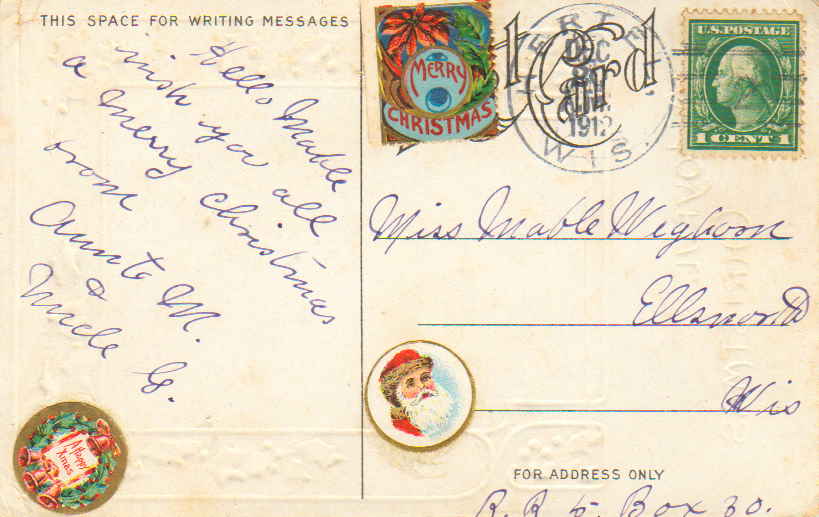 THIS SPACE FOR WRITING MESSAGES
Hello Mable
wish you all
a merry christmas
from
Aunt M.
&
Uncle G.
A Happy
Xmas
MERRY
CHRISTMAS
DEC
1912
WIS.
U.S. POSTAGE
1 CENT 1
Miss Mable Weghorn
Ellsworth
Wis
FOR ADDRESS ONLY
R. R 5. Box 30.